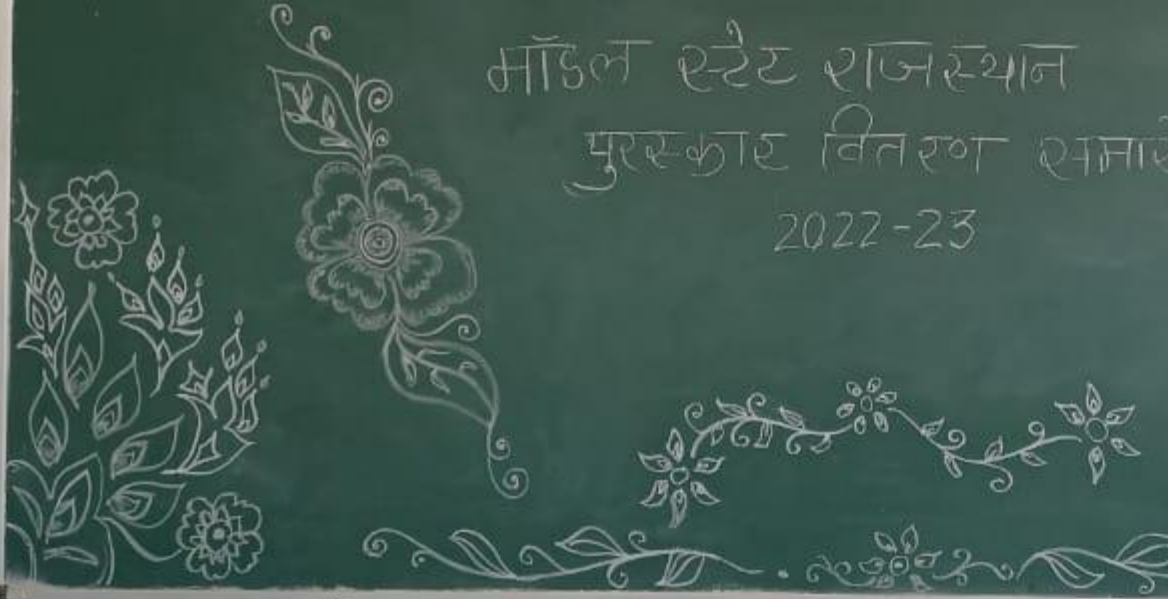 मॉडल स्टेट राजस्थान
पुरस्कार वितरण
2022-23